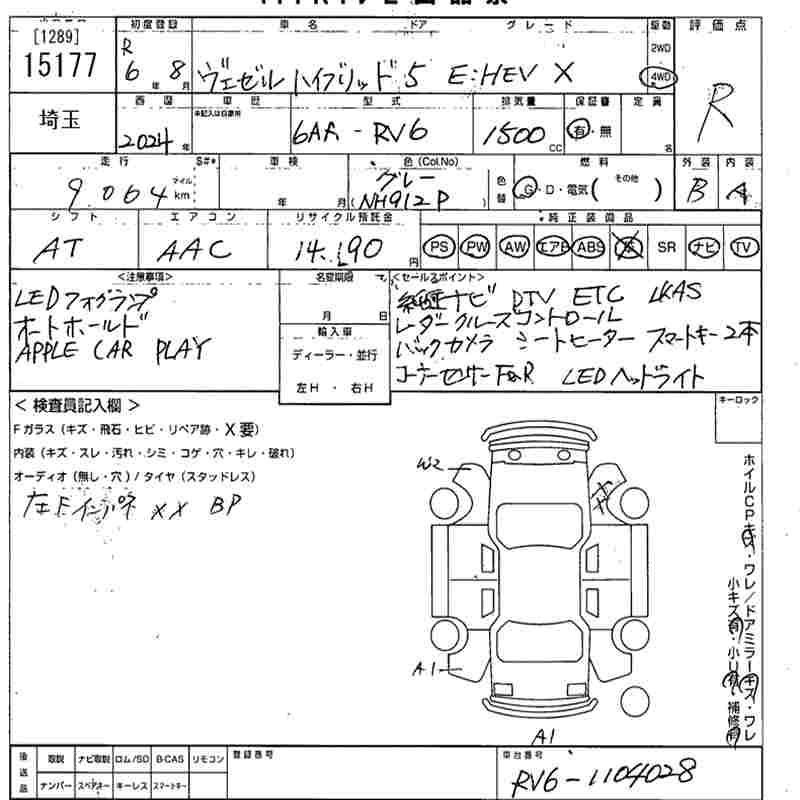 [1289]
15177
初度登録 車名 ドア グレード 駆動 評価点
R 6年 8月 ヴェゼル ハイブリッド 5 E:HEV X 2WD 4WD R
埼玉
西暦 車歴 型式 排気量 保証書 定員
未記入は自家用
2024年 6AA-RV6 1500cc 有・無 名
走行 S#* 車検 色(Col.No) 色替 燃料 外装 内装
9,064 マイル km 年 月 グレー (NH912P) G・D・電気( その他 ) B A
シフト エアコン リサイクル預託金 純正装備品
AT AAC 14,190円 PS PW AW エアB ABS 革 SR ナビ TV
<注意事項> 名変期限 <セールスポイント>
LEDフォグランプ
オートホールド
APPLE CAR PLAY
月 日
輸入車
ディーラー・並行
左H・右H
純正ナビ DTV ETC LKAS
レーダークルーズコントロール
バックカメラ シートヒーター スマートキー2本
コーナーセンサーF&R LEDヘッドライト
<検査員記入欄> キーロック
Fガラス(キズ・飛石・ヒビ・リペア跡・X要)
内装(キズ・スレ・汚れ・シミ・コゲ・穴・キレ・破れ)
オーディオ(無し・穴)/タイヤ(スタッドレス)
左Fインパネ XX BP
W2
A1
A1
ホイルCPキズ・ワレ/ドアミラーキズ・ワレ
小キズ有・小U有・補修有
後送品 取説 ナビ取説 ロム/SD B-CAS リモコン 登録番号 車台番号
ナンバー スペアキー キーレス スマートキー RV6-1104028